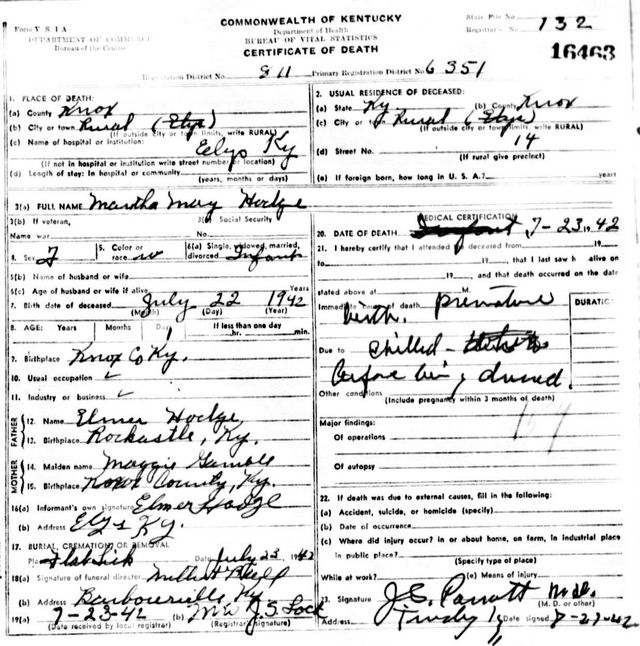 Form V. S. 1 A
DEPARTMENT OF COMMERCE
Bureau of the Census
COMMONWEALTH OF KENTUCKY
Department of Health
BUREAU OF VITAL STATISTICS
CERTIFICATE OF DEATH
State File No.
Registrar's No. 132
16463
Registration District No. 811 Primary Registration District No. 6351
1. PLACE OF DEATH:
(a) County Knox
(b) City or town Rural (Elys)
(If outside city or town limits, write RURAL)
(c) Name of hospital or institution: Eelys Ky
(If not in hospital or institution write street number or location)
(d) Length of stay: In hospital or community
(years, months or days)
2. USUAL RESIDENCE OF DECEASED:
(a) State Ky (b) County Knox
(c) City or town Rural (Elys)
(If outside city or town limits, write RURAL)
(d) Street No. 14
(If rural give precinct)
(e) If foreign born, how long in U. S. A.? years
3(a) FULL NAME Martha May Hodge
3(b) If veteran,
Name war
3(c) Social Security
No.
4. Sex F
5. Color or
race w
6(a) Single, widowed, married,
divorced Infant
5(b) Name of husband or wife
5(c) Age of husband or wife if alive Years
7. Birth date of deceased July 22 1942
(Month) (Day) (Year)
8. AGE: Years Months Days If less than one day
1 hr. min.
9. Birthplace Knox Co Ky.
10. Usual occupation
11. Industry or business
FATHER
12. Name Elmer Hodge
13. Birthplace Rockastle, Ky.
MOTHER
14. Maiden name Maggie Gamble
15. Birthplace Knox County, Ky.
16(a) Informant's own signature Elmer Hodge
(b) Address Elys Ky.
17. BURIAL, CREMATION OR REMOVAL
Place Flat Lick Date July 23, 1942
18(a) Signature of funeral director
(b) Address Barbourville Ky
19(a) 7-23-42 (b) J. S. Lock
(Date received by local registrar) (Registrar's signature)
MEDICAL CERTIFICATION
20. DATE OF DEATH 7-23, 1942
21. I hereby certify that I attended deceased from , 19
to , 19 , that I last saw h alive on
, 19 , and that death occurred on the date
stated above at M.
Immediate cause of death premature
birth.
DURATION
Due to chilled -
before being
Other conditions
(Include pregnancy within 3 months of death)
Major findings:
Of operations
Of autopsy
22. If death was due to external causes, fill in the following:
(a) Accident, suicide, or homicide (specify)
(b) Date of occurrence
(c) Where did injury occur? in or about home, on farm, in industrial place
in public place?
(Specify type of place)
While at work? (e) Means of injury
23. Signature J. E. Parrott M.D.
(M. D. or other)
Address Date signed 7-27-42